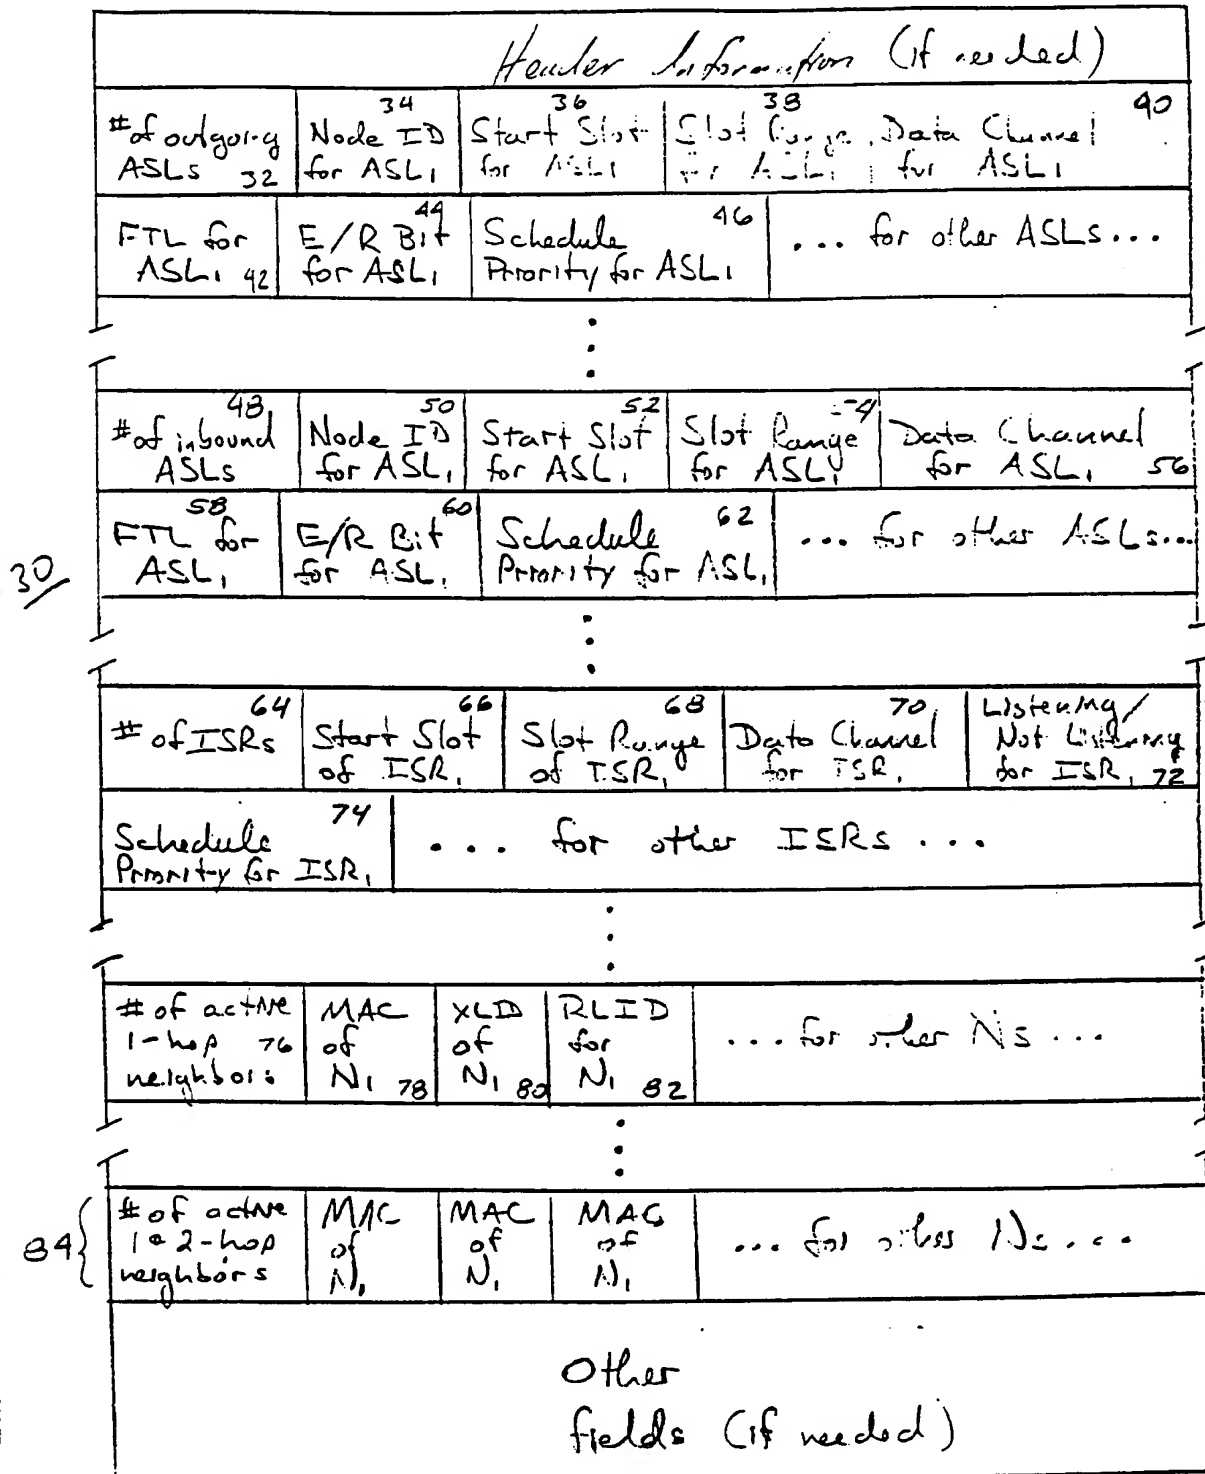 Header Information (if needed)
# of outgoing ASLs 32
34 Node ID for ASL1
36 Start Slot for ASL1
38 Slot Range for ASL1
Data Channel for ASL1 40
FTL for ASL1 42
E/R Bit 44 for ASL1
Schedule 46 Priority for ASL1
... for other ASLs ...
48 # of inbound ASLs
50 Node ID for ASL1
52 Start Slot for ASL1
54 Slot Range for ASL1
Data Channel for ASL1 56
58 FTL for ASL1
E/R Bit 60 for ASL1
Schedule 62 Priority for ASL1
... for other ASLs...
30
64 # of ISRs
66 Start Slot of ISR1
68 Slot Range of ISR1
70 Data Channel for ISR1
Listening/ Not Listening for ISR1 72
74 Schedule Priority for ISR1
... for other ISRs ...
# of active 1-hop 76 neighbors
MAC of N1 78
XLD of N1 80
RLID for N1 82
... for other Ns ...
84
# of active 1 2-hop neighbors
MAC of N1
MAC of N1
MAC of N1
... for other Ns ...
Other
fields (if needed)